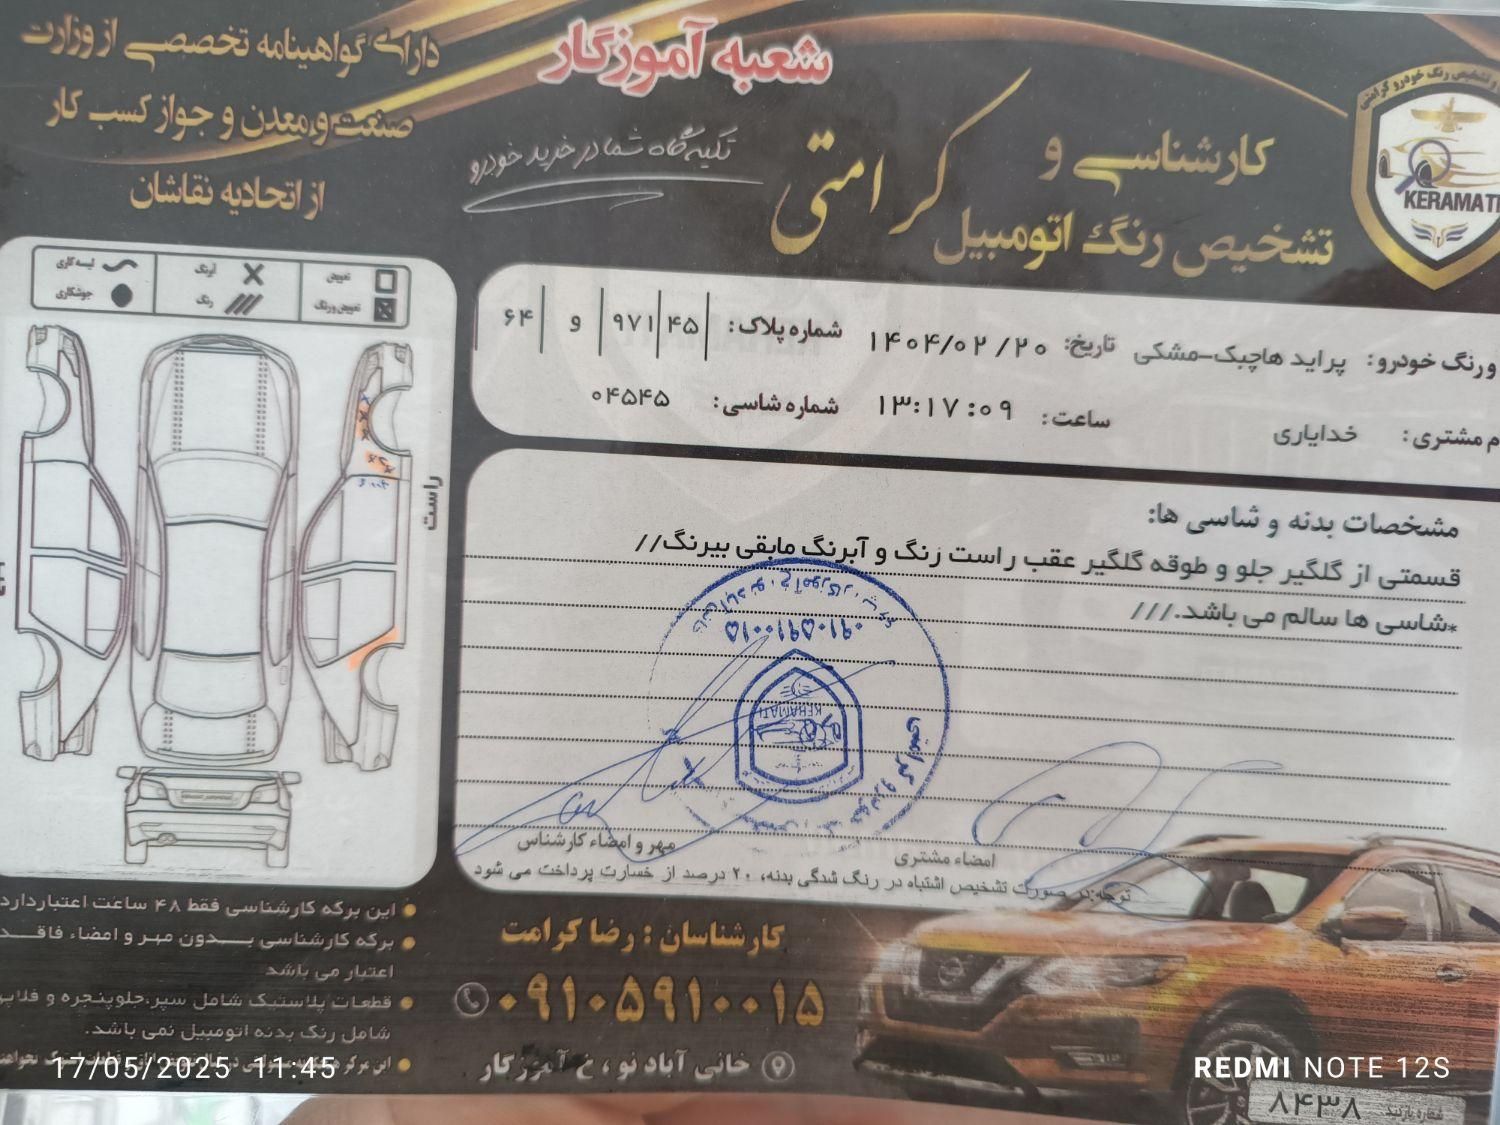 شعبه آموزگار
دارای گواهینامه تخصصی از وزارت
صنعت و معدن و جواز کسب کار
از اتحادیه نقاشان
تکیه گاه شما در خرید خودرو
کارشناسی و
تشخیص رنگ اتومبیل
کرامتی
KERAMATI
تعویض
آبرنگ
لیسه کاری
تعویض و رنگ
رنگ
جوشکاری
راست
و رنگ خودرو: پراید هاچبک-مشکی
تاریخ: ۱۴۰۴/۰۲/۲۰
شماره پلاک: ۴۵ ۹۷۱ و ۶۴
م مشتری: خدایاری
ساعت: ۱۳:۱۷:۰۹
شماره شاسی: ۰۴۵۴۵
مشخصات بدنه و شاسی ها:
قسمتی از گلگیر جلو و طوقه گلگیر عقب راست رنگ و آبرنگ مابقی بیرنگ//
*شاسی ها سالم می باشد.///
۰۹۱۰۵۹۱۰۰۱۵
KERAMATI
امضاء مشتری
مهر و امضاء کارشناس
توجه: در صورت تشخیص اشتباه در رنگ شدگی بدنه، ۲۰ درصد از خسارت پرداخت می شود
این برگه کارشناسی فقط ۴۸ ساعت اعتبار دارد
برگه کارشناسی بدون مهر و امضاء فاقد
اعتبار می باشد
قطعات پلاستیک شامل سپر،جلوپنجره و فلاپ
شامل رنگ بدنه اتومبیل نمی باشد.
کارشناسان : رضا کرامت
۰۹۱۰۵۹۱۰۰۱۵
خانی آباد نو ، خ آموزگار
شماره بازدید
۸۴۳۸
17/05/2025 11:45
REDMI NOTE 12S